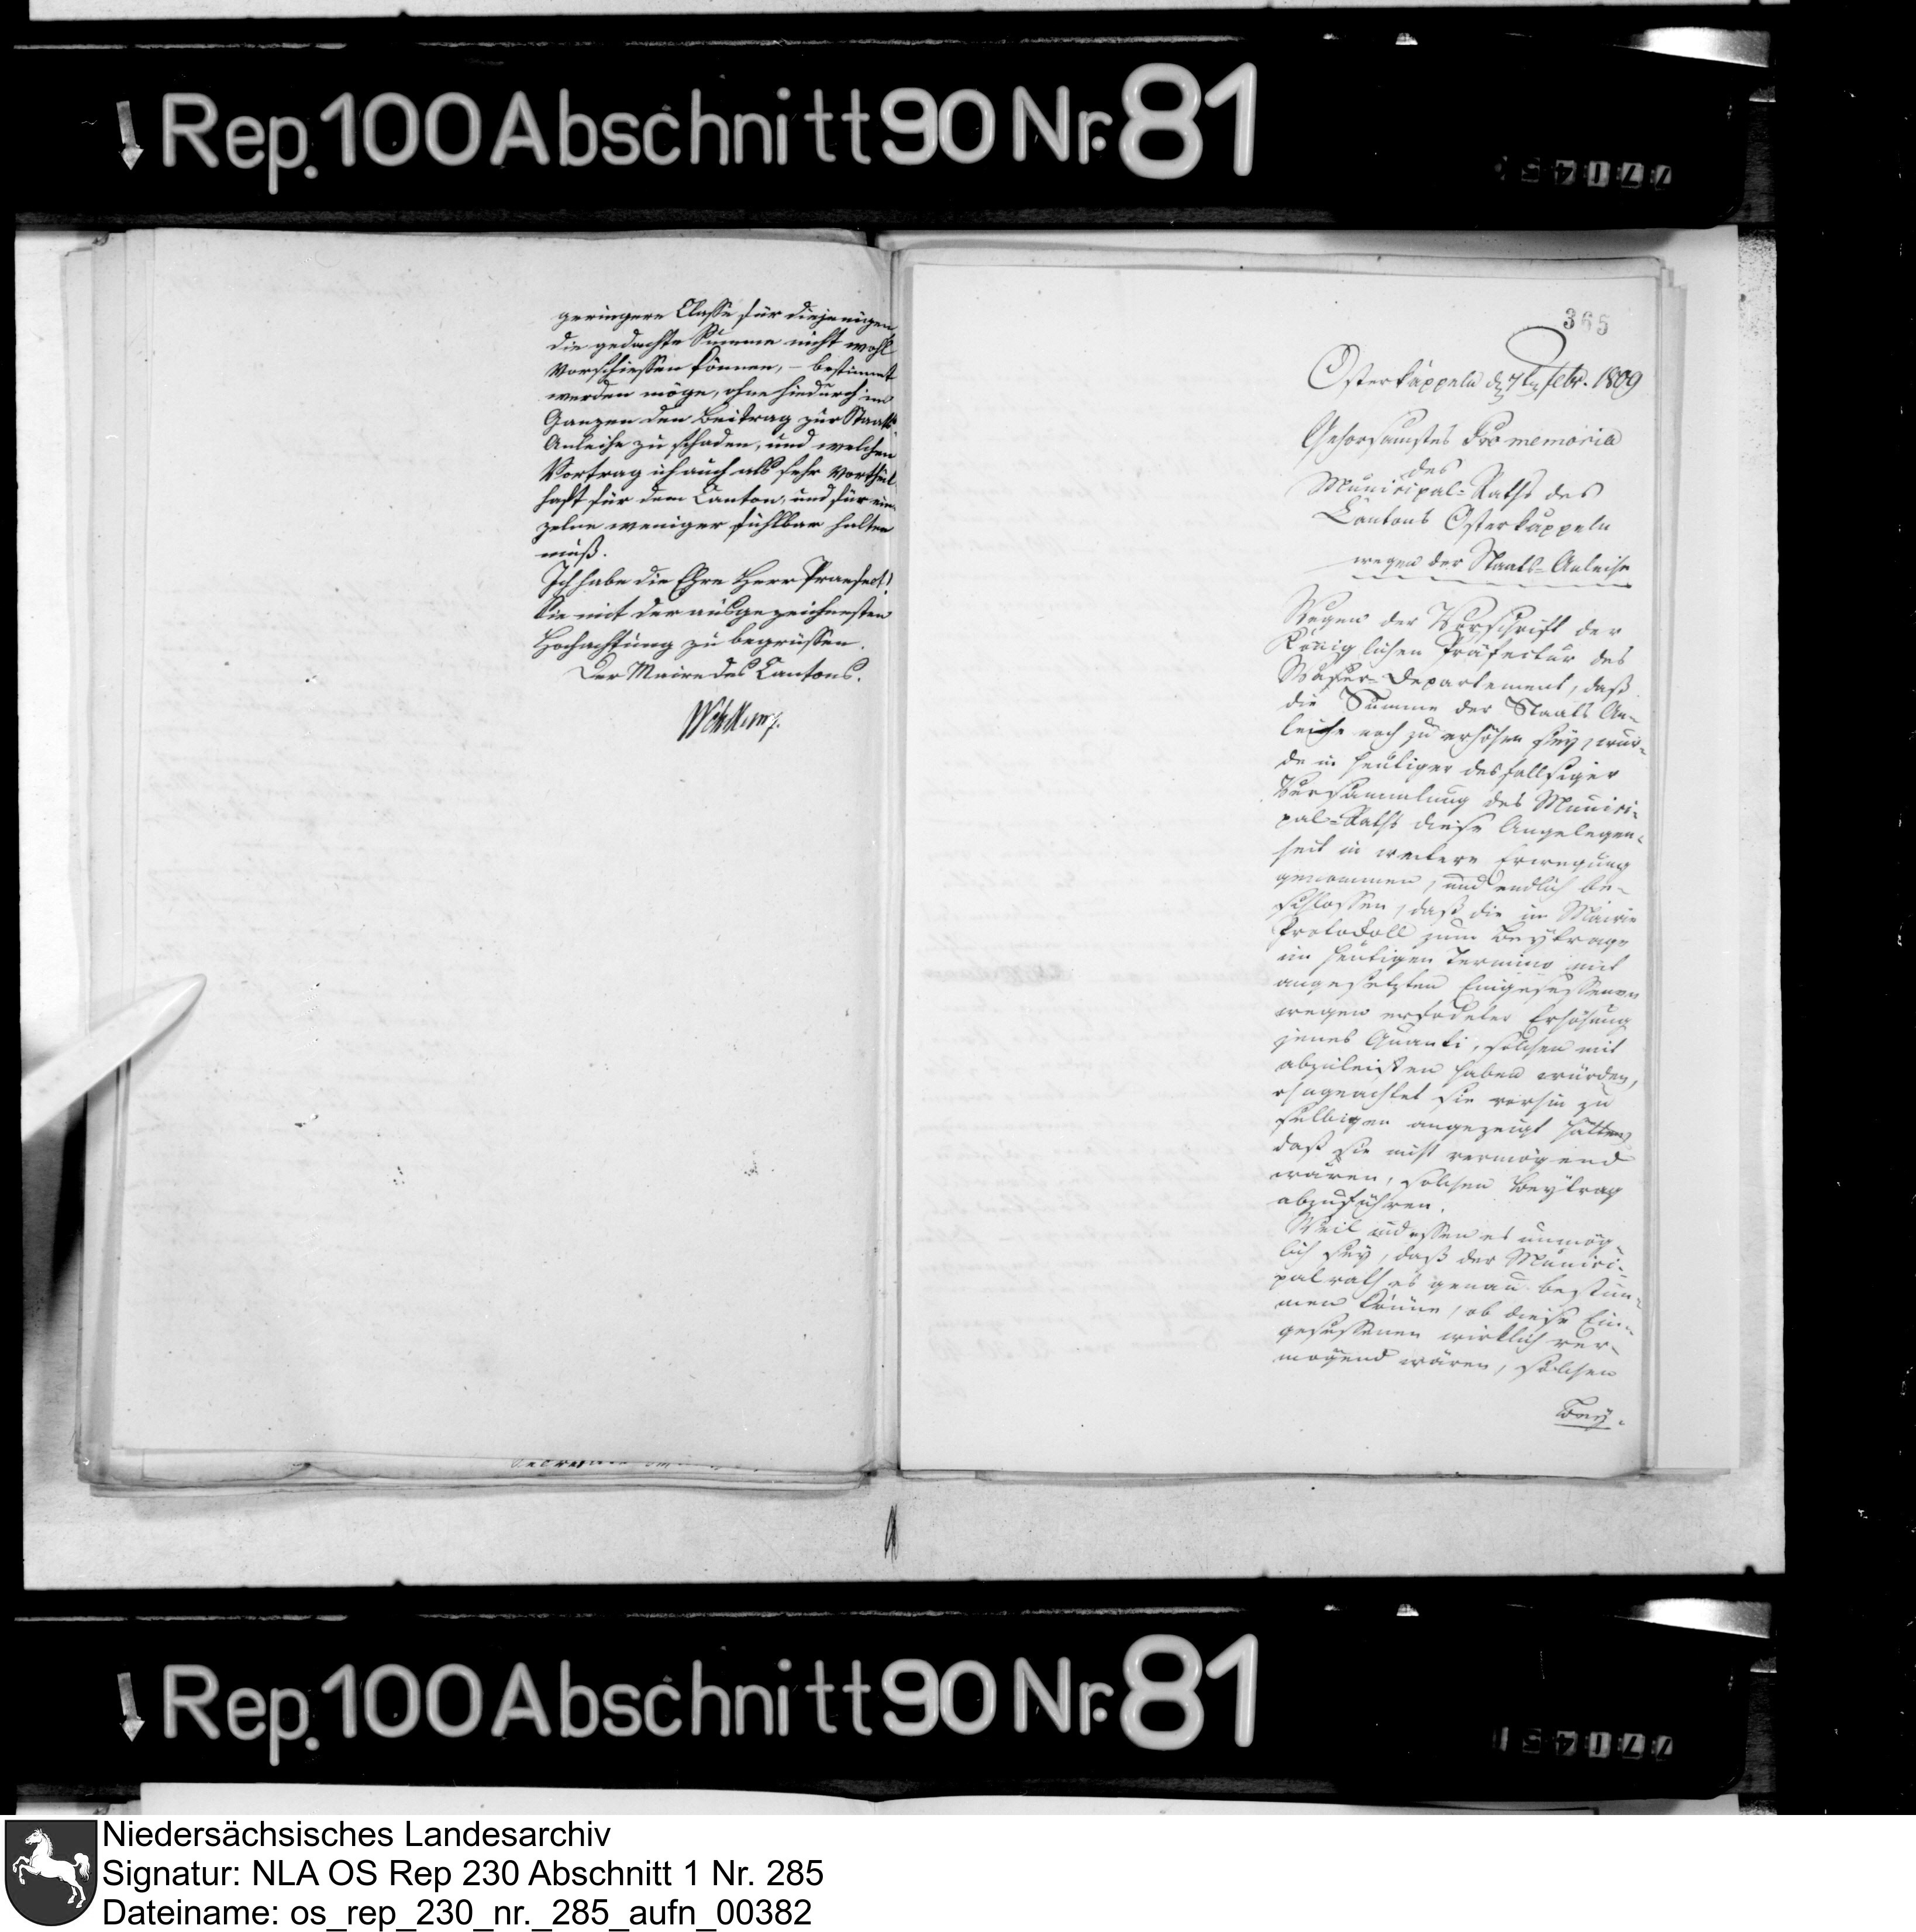 Rep. 100 Abschnitt 90 Nr. 81
geringere Classe für diejenigen
die gedachte Summe nicht wohl
vorschiessen können, – bestimmt
werden möge, ohne hiedurch im
Ganzen den Beitrag zur Staats
Anleihe zu schaden, und welchen
Vortrag ich auch als sehr vortheil
haft für dem Canton, und für ein-
zelne weniger fühlbar halten
muß.
Ich habe die Ehre Herr Praefect!
Sie mit der ausgezeichnesten
Hochachtung zu begrüssen.
Der Maire des Cantons.
365
Osterkappeln d 7ten Febr. 1809
Gehorsamstes Pro memoria
des
Municipal-Raths des
Cantons Osterkappeln
wegen der Staats-Anleihe
Wegen der Vorschrift der
Königlichen Präfectur des
Weser-Departement, daß
die Summe der Staats An-
leihe noch zu erhöhen sey, wur-
de in heutiger desfallsiger
Versammlung des Munici-
pal-Raths diese Angelegen-
heit in weitere Erwegung
genommen, und endlich be-
schlossen, daß die im Mairie
Protocoll zum Beytrage
im heutigen Termino mit
angesetzten Eingesessenen
wegen erfoderter Erhöhung
jenes Quanti, solchen mit
abzuleisten haben würden,
ohngeachtet sie vorhin zu
selbigen angezeigt hätten,
daß sie nicht vermögend
wären, solchen Beytrag
abzuführen.
Weil indessen es unmög-
lich sey, daß der Munici-
palrath es genau bestim-
men könne, ob diese Ein-
gesessenen wirklich ver-
mögend wären, solchen
Bey-
Rep. 100 Abschnitt 90 Nr. 81
Niedersächsisches Landesarchiv
Signatur: NLA OS Rep 230 Abschnitt 1 Nr. 285
Dateiname: os_rep_230_nr._285_aufn_00382